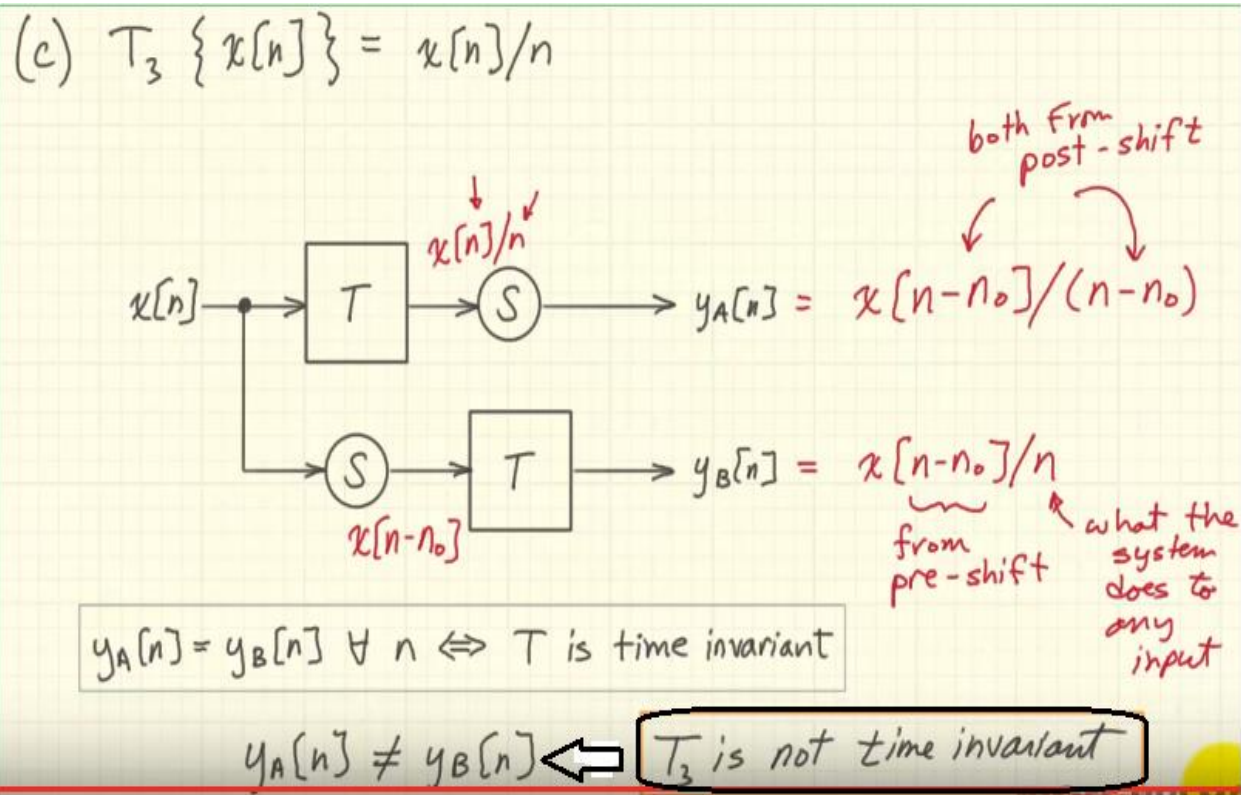 (c) T₃ { x[n] } = x[n]/n
both from
post-shift
x[n]/n
x[n]
T
S
y_A[n] = x[n-n₀]/(n-n₀)
S
T
y_B[n] = x[n-n₀]/n
x[n-n₀]
from
pre-shift
what the
system
does to
any
input
y_A[n] = y_B[n] ∀ n ⇔ T is time invariant
y_A[n] ≠ y_B[n] ⇐ T₃ is not time invariant